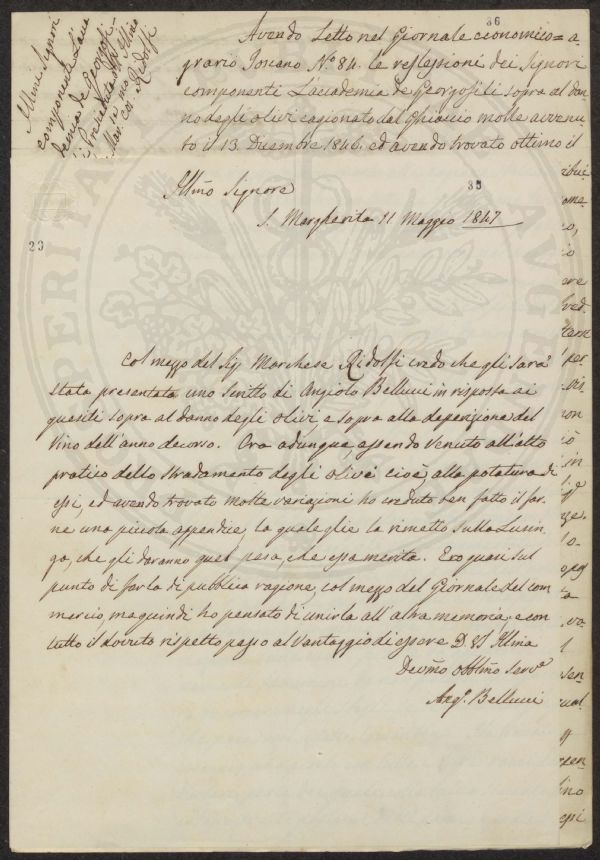 36
Avendo Letto nel Giornale economico=a
grario Toscano N.º 84. le reflessioni dei Signori
componenti L'accademia de Georgofili sopra al dan
no degli olivi cagionato dal Ghiaccio molle avvenu
to il 13. Dicembre 1846. ed avendo trovato ottimo il
Illmi Signori
componenti L'acca
demia de Georgofi-
li Presieduta dall' Illmo
Mar. co. Ridolfi
35
Illmo Signore
S. Margherita 11 Maggio 1847
23
Col mezzo del Sig Marchese Ridolfi credo che gli sarà
stata presentata uno Scritto di Angiolo Bellucci in risposta ai
quesiti sopra al danno degli olivi, e sopra alla deperizione del
Vino dell'anno decorso. Ora adunque, essendo Venuto all'atto
pratico dello stradamento degli olivi cioè, alla potatura di
essi, ed avendo trovato molte variazioni ho creduto ben fatto il far
ne una piccola appendice, la quale glie la rimetto sulla Lusin
ga, che gli daranno quel peso, che essa merita. Ero quasi sul
punto di farla di pubblica ragione, col mezzo del Giornale del com
mercio, ma quindi ho pensato di unirla all'altra memoria; e con
tutto il dovuto rispetto passo al Vantaggio di essere D. VS Illma
Devmo obblmo Serv.e
Ang.º Bellucci